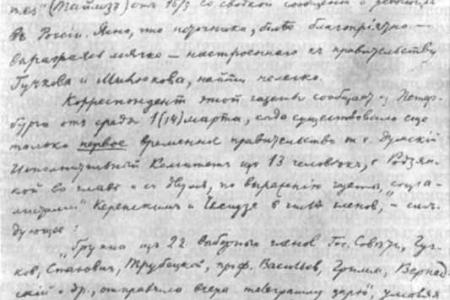 mes (Таймс) от 16/3 со сводкой сообщений о революции
в России. Ясно, что источника, более благоприятно —
выражаясь мягко — настроенного к правительству
Гучкова и Милюкова, найти нелегко.
Корреспондент этой газеты сообщает из Петер-
бурга от среды 1 (14) марта, когда существовало еще
только первое временное правительство т. е. думский
Исполнительный Комитет из 13 человек, с Родзян-
кой во главе и с двумя, по выражению газеты, "социа-
листами" Керенским и Чхеидзе в числе членов, — сле-
дующее:
"Группа из 22 выборных членов Гос. Совета, Гуч-
ков, Стахович, Трубецкой, проф. Васильев, Гримм, Вернад-
ский и др., отправила вчера телеграмму царю", умоляя